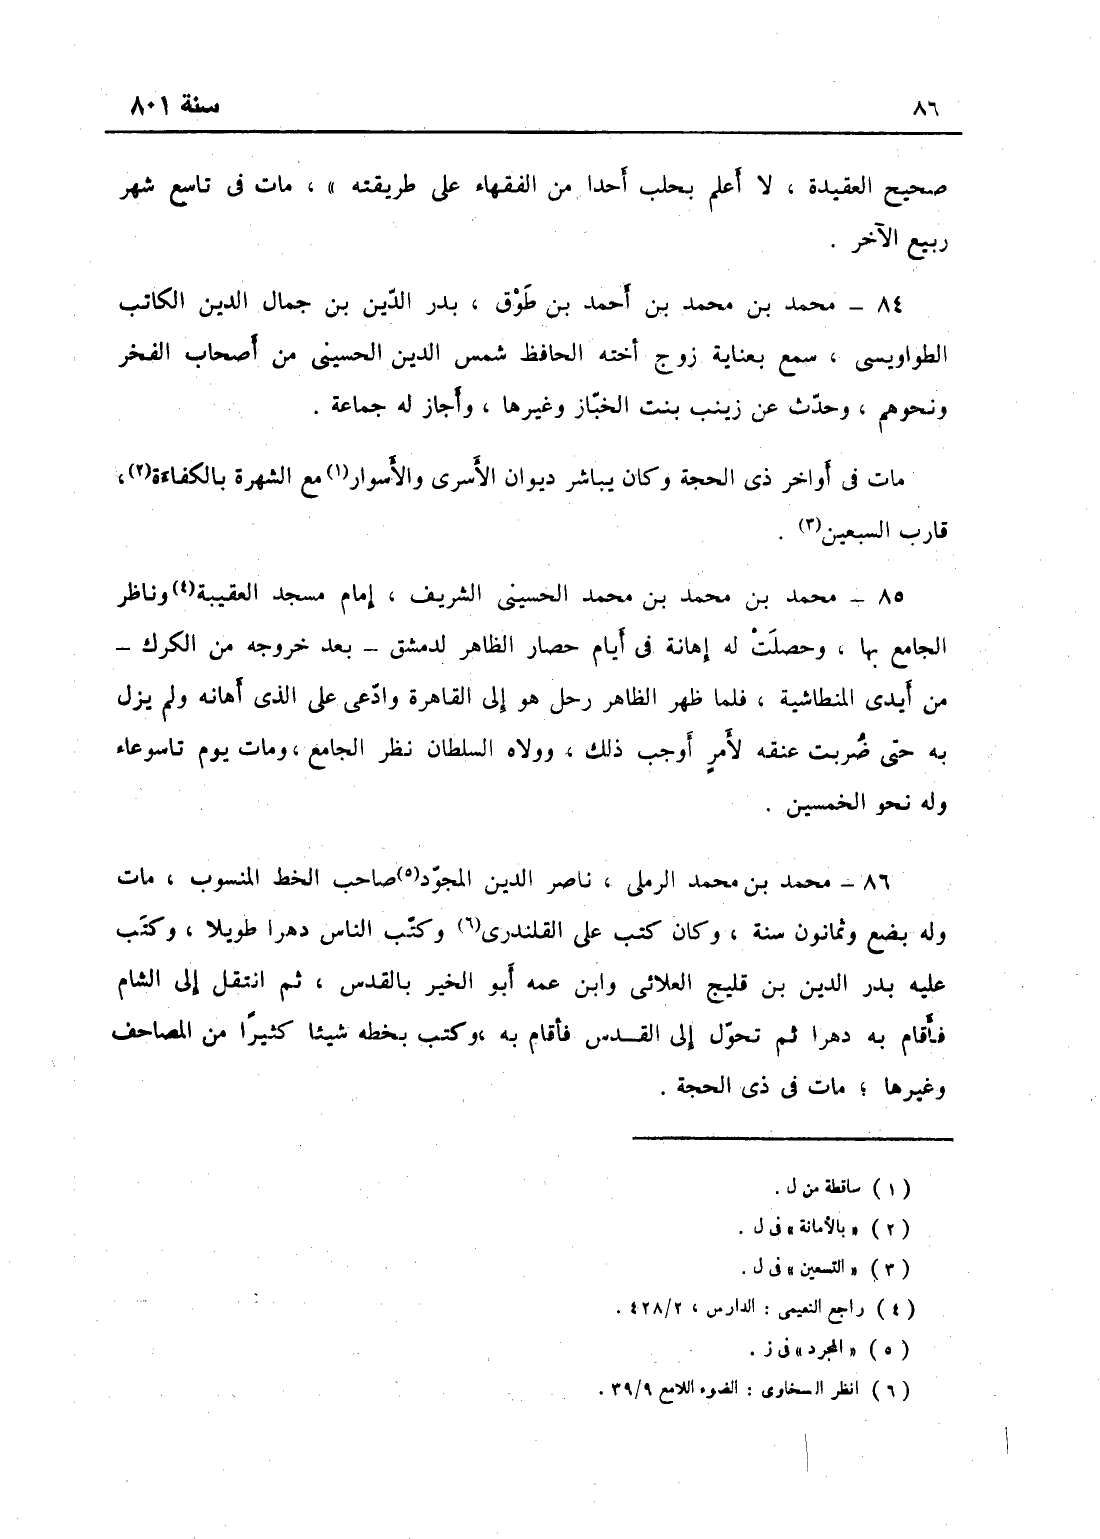 ٨٦ سنة ٨٠١
صحيح العقيدة ، لا أَعلم بحلب أَحدا من الفقهاء على طريقته » ، مات فى تاسع شهر
ربيع الآخر .
٨٤ – محمد بن محمد بن أَحمد بن طَوْق ، بدر الدّين بن جمال الدين الكاتب
الطواويسى ، سمع بعناية زوج أخته الحافظ شمس الدين الحسينى من أَصحاب الفخر
ونحوهم ، وحدّث عن زينب بنت الخبّاز وغيرها ، وأَجاز له جماعة .
مات فى أَواخر ذى الحجة وكان يباشر ديوان الأَسرى والأَسوار(١) مع الشهرة بالكفاءة(٢)،
قارب السبعين(٣) .
٨٥ – محمد بن محمد بن محمد الحسينى الشريف ، إمام مسجد العقيبة(٤) وناظر
الجامع بها ، وحصلَتْ له إهانة فى أَيام حصار الظاهر لدمشق – بعد خروجه من الكرك –
من أَيدى المنطاشية ، فلما ظهر الظاهر رحل هو إلى القاهرة وادّعى على الذى أَهانه ولم يزل
به حتى ضُربت عنقه لأَمرٍ أَوجب ذلك ، وولاه السلطان نظر الجامع ،ومات يوم تاسوعاء
وله نحو الخمسين .
٨٦ – محمد بن محمد الرملى ، ناصر الدين المجوّد(٥) صاحب الخط المنسوب ، مات
وله بضع وثمانون سنة ، وكان كتب على القلندرى(٦) وكتّب الناس دهرا طويلا ، وكتَب
عليه بدر الدين بن قليج العلائى وابن عمه أَبو الخير بالقدس ، ثم انتقل إلى الشام
فأَقام به دهرا ثم تحوّل إلى القدس فأقام به ،وكتب بخطه شيئا كثيرًا من المصاحف
وغيرها ؛ مات فى ذى الحجة .
( ١ ) ساقطة من ل .
( ٢ ) « بالأمانة » فى ل .
( ٣ ) « التسعين » فى ل .
( ٤ ) راجع النعيمى : الدارس ، ٤٢٨/٢ .
( ٥ ) « المجرد » فى ز .
( ٦ ) انظر السخاوى : الضوء اللامع ٣٩/٩ .